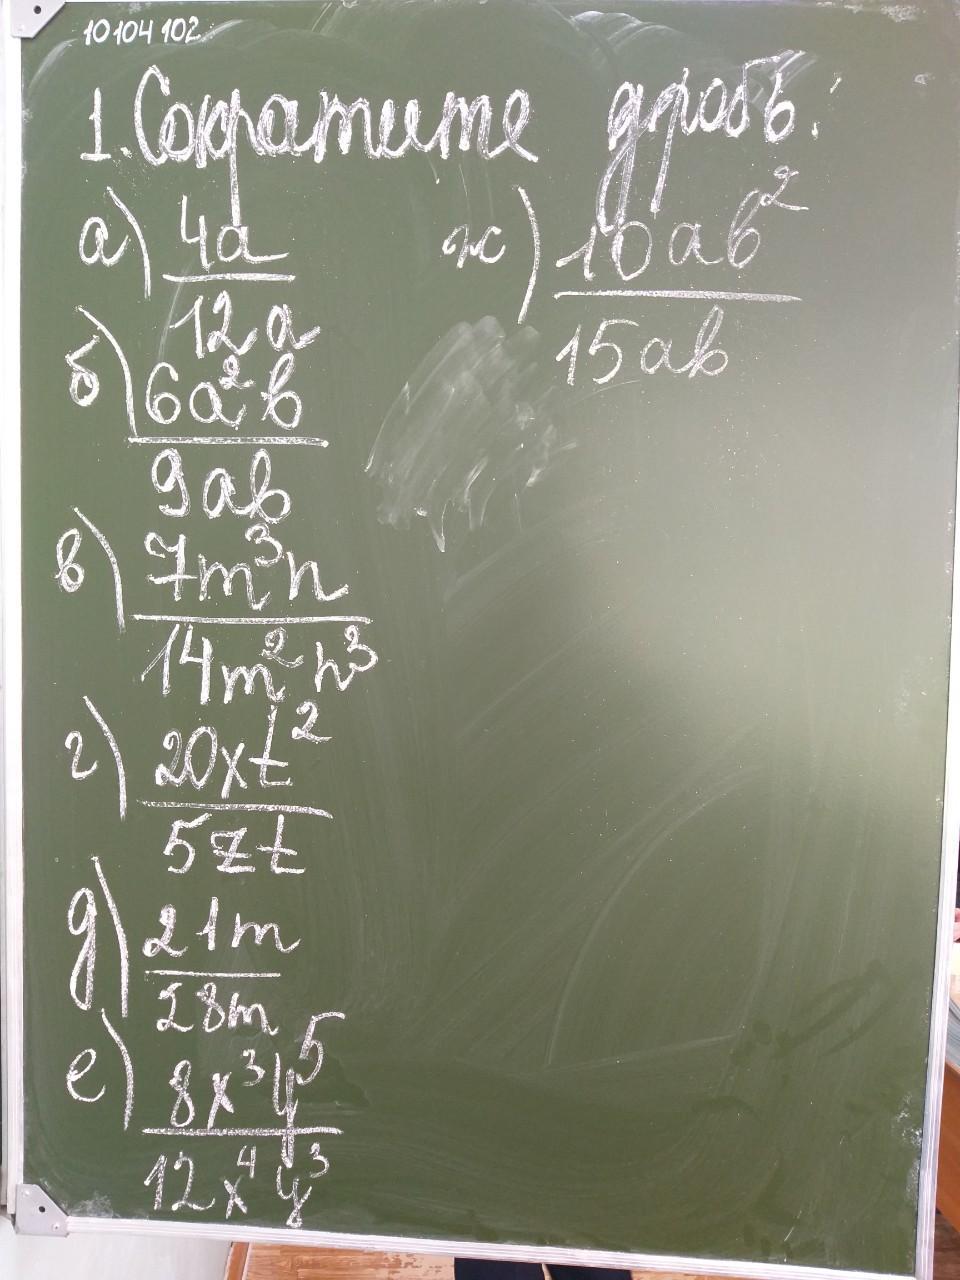 10104102
1. Сократите дробь:
а) 4a
12a
б) 6a²b
9ab
в) 7m³n
14m²n³
г) 20xt²
5zt
д) 21m
28m
е) 8x³y⁵
12x⁴y³
ж) 10ab²
15ab